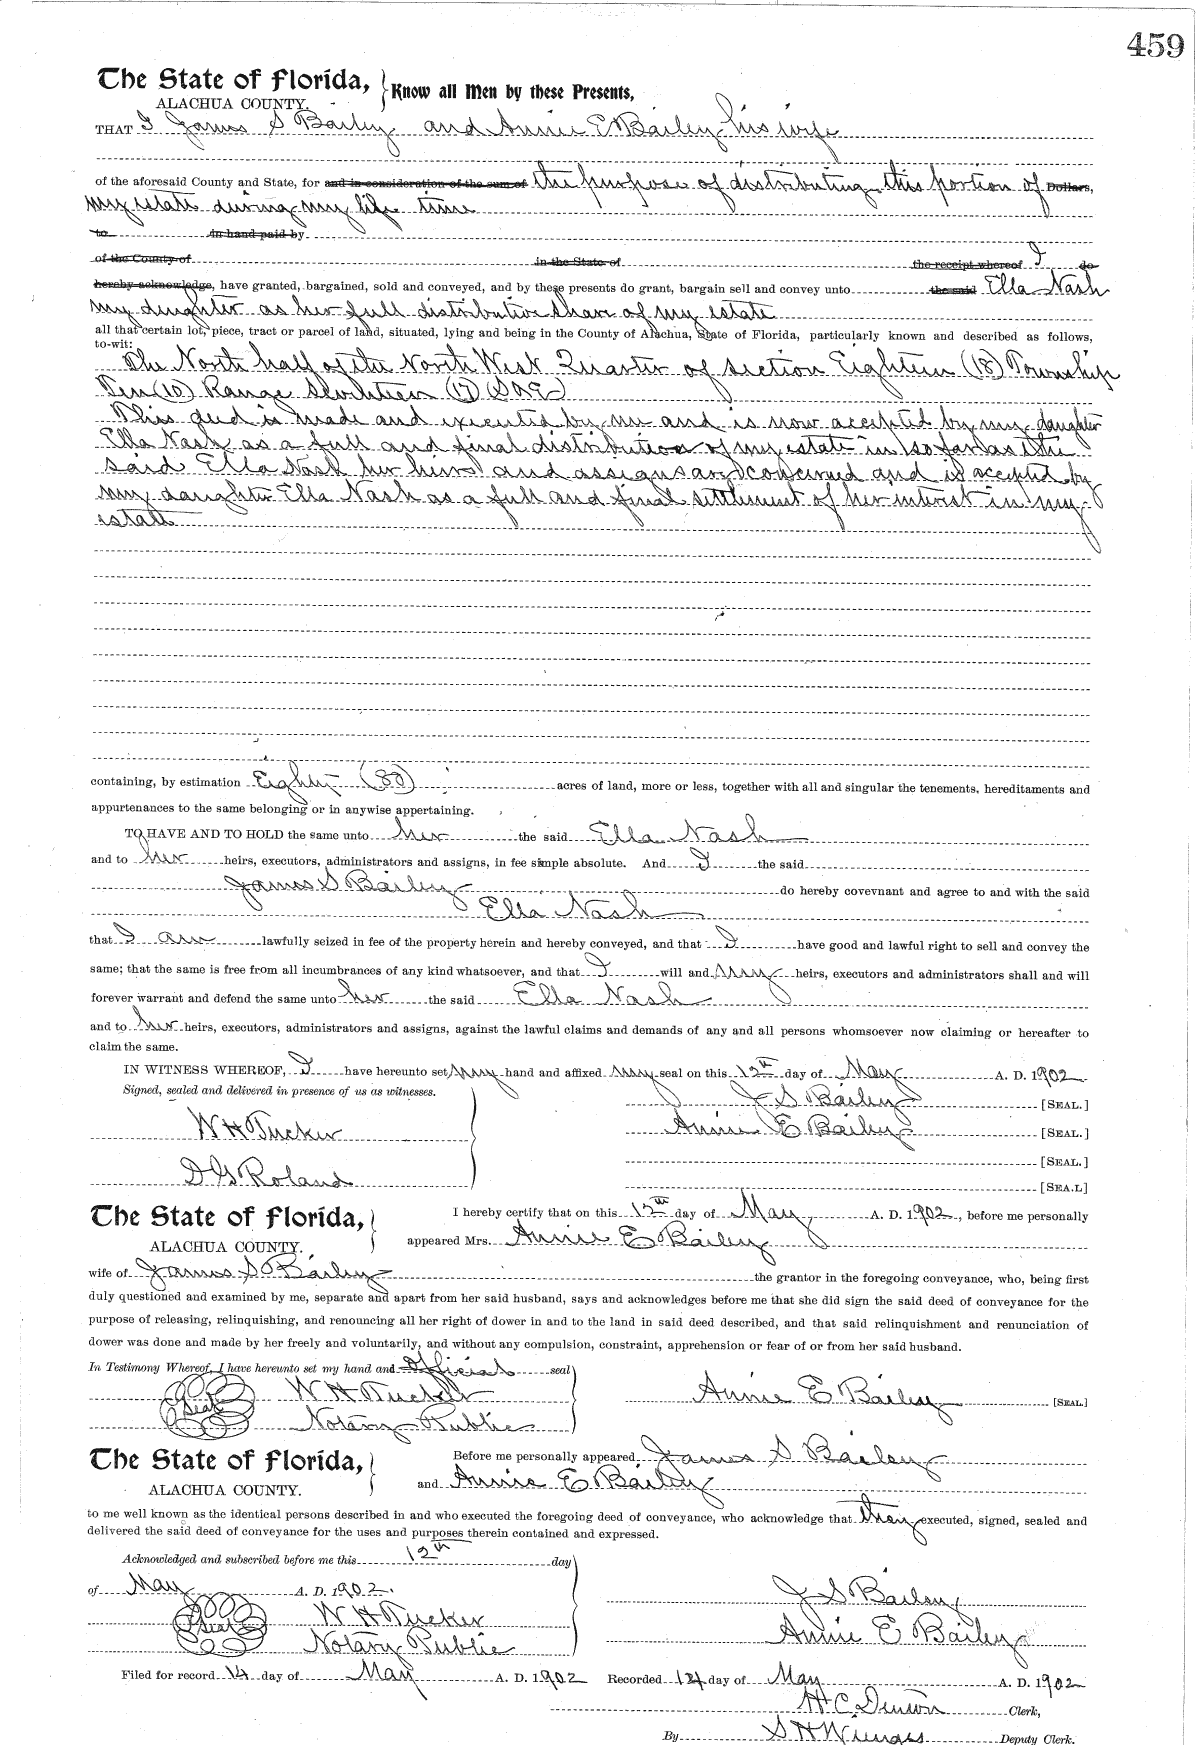 459
The State of Florida, Know all Men by these Presents,
ALACHUA COUNTY.
THAT I James S Bailey and Annie E Bailey his wife
of the aforesaid County and State, for and in consideration of the sum of the purpose of distributing this portion of Dollars,
my estate during my life time
to in hand paid by
of the County of in the State of the receipt whereof I do
hereby acknowledge, have granted, bargained, sold and conveyed, and by these presents do grant, bargain sell and convey unto the said Ella Nash
my daughter as her full distributive share of my estate
all that certain lot, piece, tract or parcel of land, situated, lying and being in the County of Alachua, State of Florida, particularly known and described as follows,
to-wit:
The North half of the North West Quarter of section Eighteen (18) Township
Ten (10) Range Seventeen (17) S & E
This deed is made and executed by me and is now accepted by my daughter
Ella Nash as a full and final distribution of my estate in so far as the
said Ella Nash her heirs and assigns are concerned and is accepted by
my daughter Ella Nash as a full and final settlement of her interest in my
estate
containing, by estimation Eighty (80) acres of land, more or less, together with all and singular the tenements, hereditaments and
appurtenances to the same belonging or in anywise appertaining.
TO HAVE AND TO HOLD the same unto her the said Ella Nash
and to her heirs, executors, administrators and assigns, in fee simple absolute. And I the said
James S Bailey do hereby covevnant and agree to and with the said
Ella Nash
that I am lawfully seized in fee of the property herein and hereby conveyed, and that I have good and lawful right to sell and convey the
same; that the same is free from all incumbrances of any kind whatsoever, and that I will and my heirs, executors and administrators shall and will
forever warrant and defend the same unto her the said Ella Nash
and to her heirs, executors, administrators and assigns, against the lawful claims and demands of any and all persons whomsoever now claiming or hereafter to
claim the same.
IN WITNESS WHEREOF, I have hereunto set my hand and affixed my seal on this 12th day of May A. D. 1902
Signed, sealed and delivered in presence of us as witnesses.
J S Bailey [SEAL.]
W H Tucker Annie E Bailey [SEAL.]
[SEAL.]
D G Roland [SEA.L]
The State of Florida, I hereby certify that on this 12th day of May A. D. 1902, before me personally
ALACHUA COUNTY. appeared Mrs. Annie E Bailey
wife of James S Bailey the grantor in the foregoing conveyance, who, being first
duly questioned and examined by me, separate and apart from her said husband, says and acknowledges before me that she did sign the said deed of conveyance for the
purpose of releasing, relinquishing, and renouncing all her right of dower in and to the land in said deed described, and that said relinquishment and renunciation of
dower was done and made by her freely and voluntarily, and without any compulsion, constraint, apprehension or fear of or from her said husband.
In Testimony Whereof, I have hereunto set my hand and official seal
Seal W H Tucker Annie E Bailey [SEAL.]
Notary Public
The State of Florida, Before me personally appeared James S Bailey
ALACHUA COUNTY. and Annie E Bailey
to me well known as the identical persons described in and who executed the foregoing deed of conveyance, who acknowledge that they executed, signed, sealed and
delivered the said deed of conveyance for the uses and purposes therein contained and expressed.
Acknowledged and subscribed before me this 12th day
of May A. D. 1902. J S Bailey
Seal W H Tucker
Annie E Bailey
Notary Public
Filed for record 14 day of May A. D. 1902 Recorded 14 day of May A. D. 1902
H C Denton Clerk,
By S H Wienges Deputy Clerk.